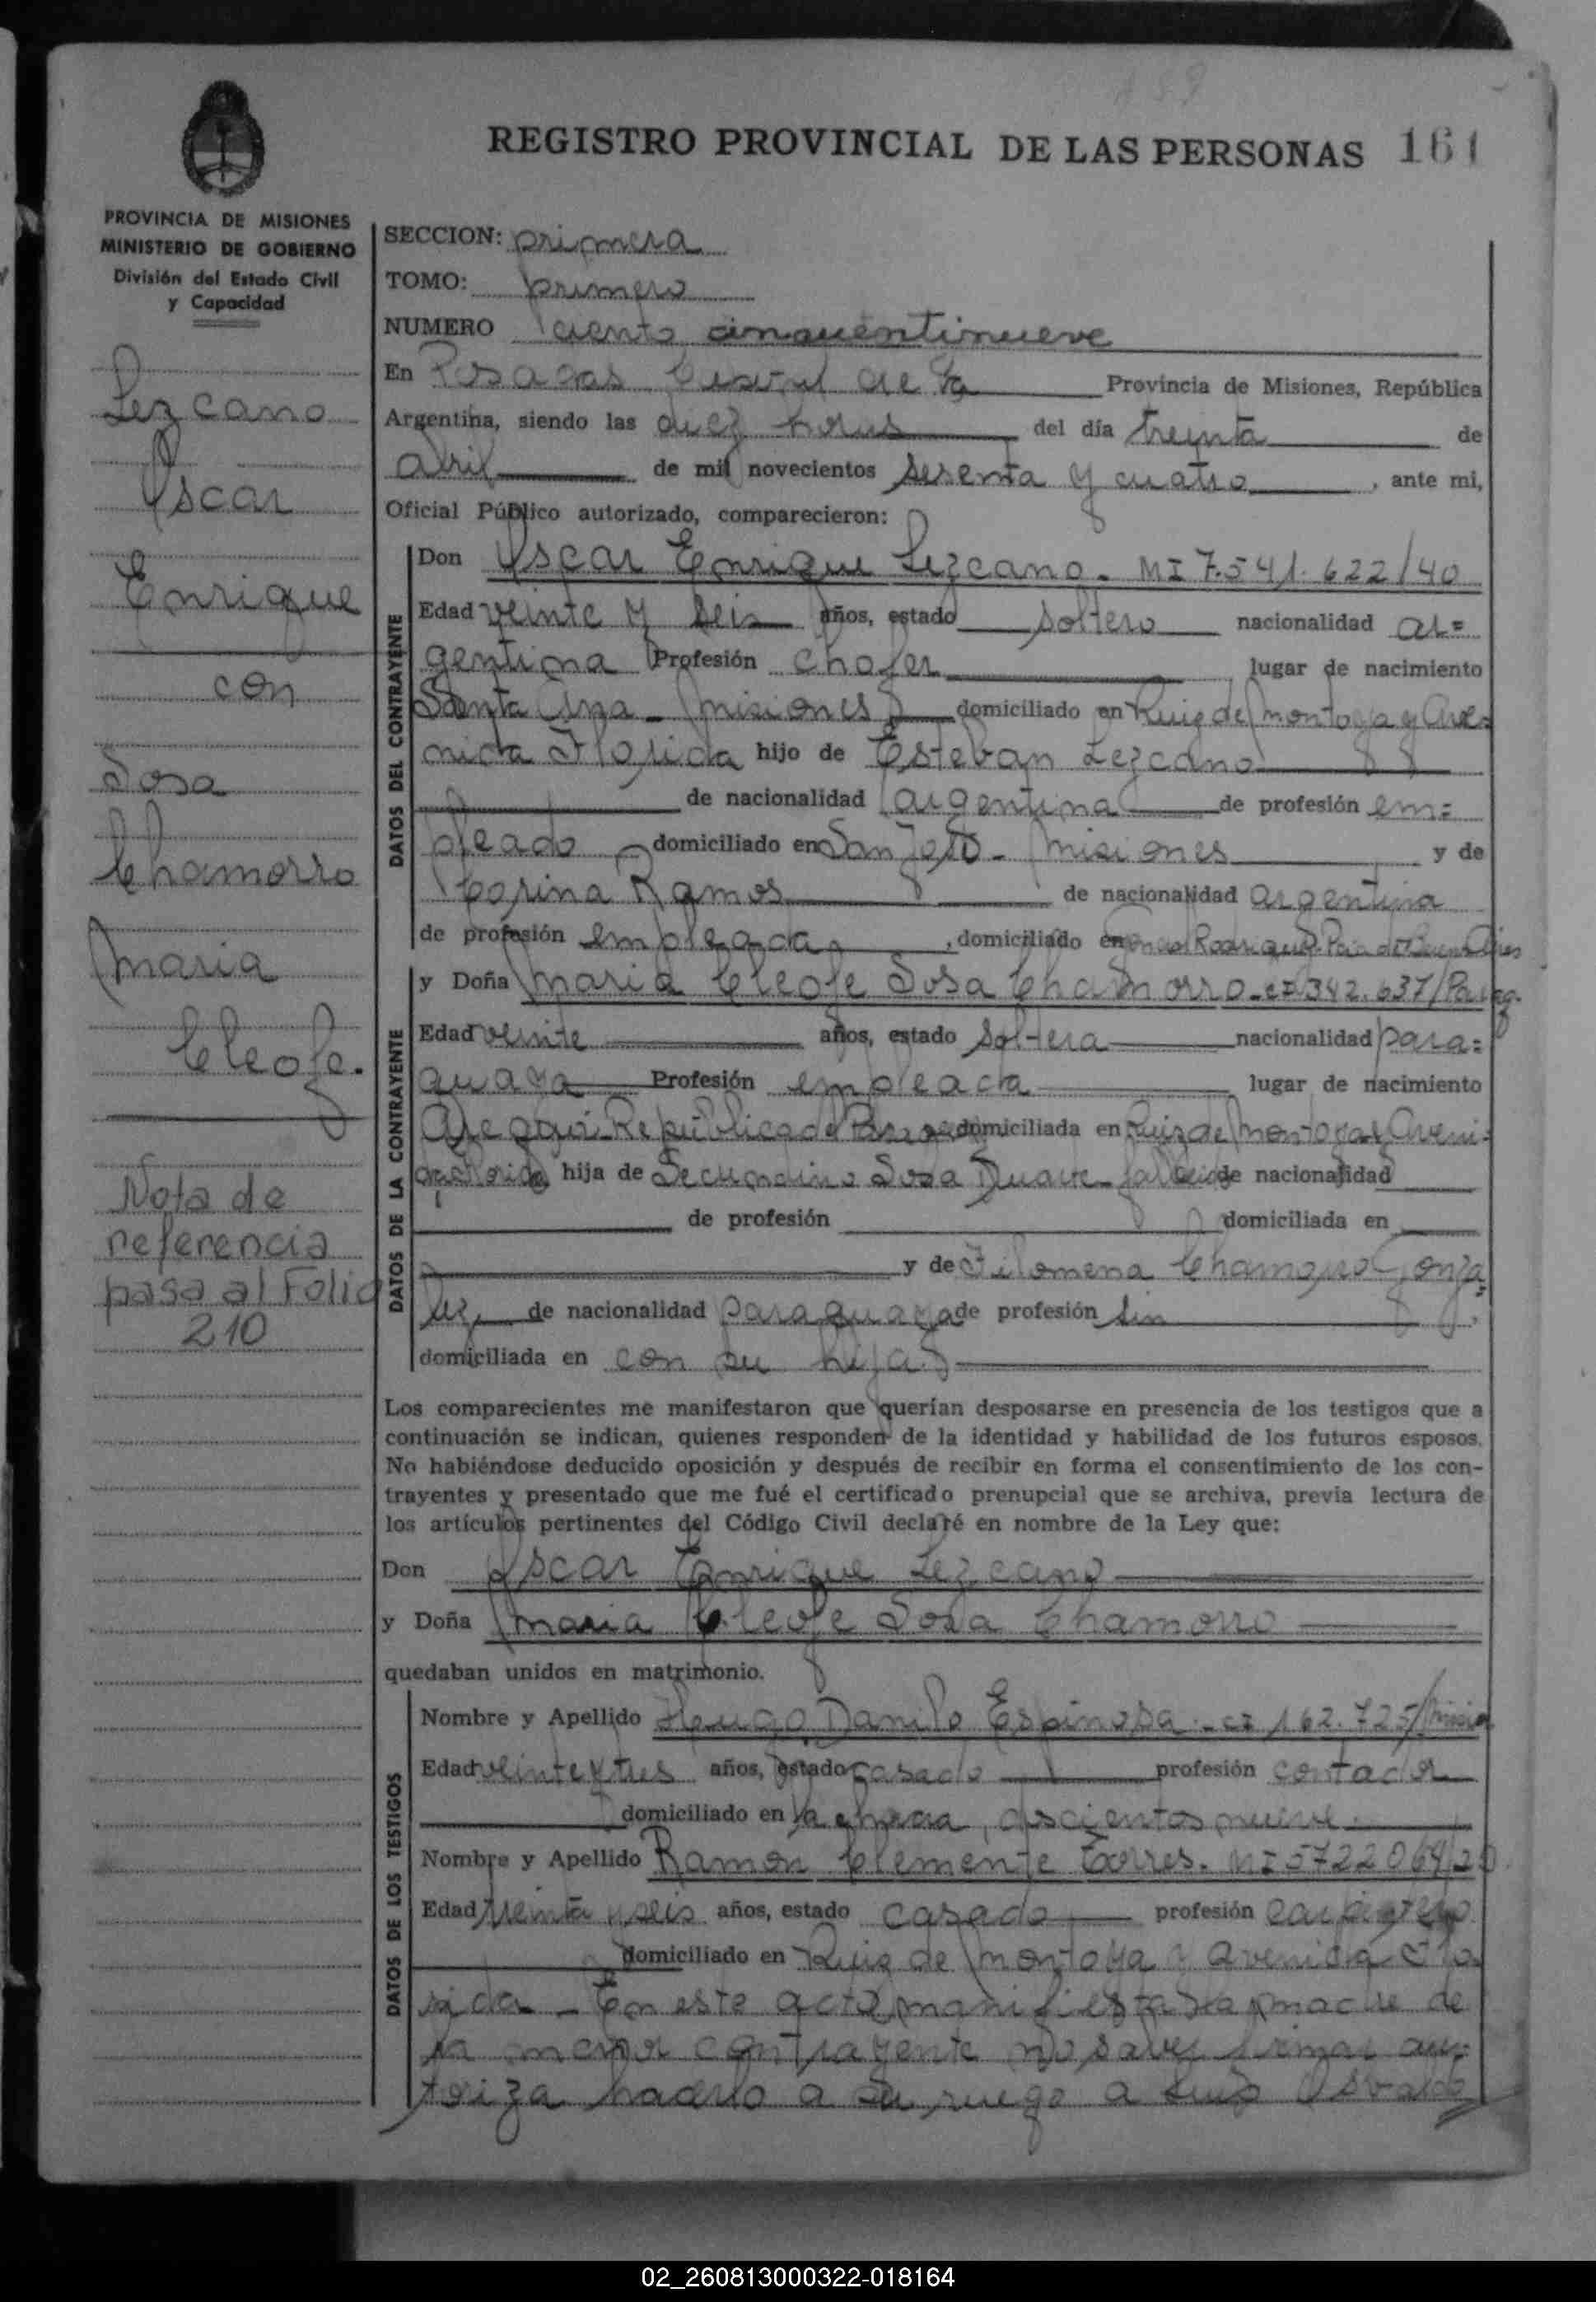 159
REGISTRO PROVINCIAL DE LAS PERSONAS 161
PROVINCIA DE MISIONES
MINISTERIO DE GOBIERNO
División del Estado Civil
y Capacidad
Lezcano
Oscar
Enrique
con
Sosa
Chamorro
Maria
Cleofe.
Nota de
referencia
pasa al Folio
210
SECCION: primera
TOMO: primero
NUMERO ciento cincuentinueve
En Posadas Capital de la Provincia de Misiones, República
Argentina, siendo las diez horas del día treinta de
abril de mil novecientos sesenta y cuatro, ante mi,
Oficial Público autorizado, comparecieron:
DATOS DEL CONTRAYENTE
Don Oscar Enrique Lezcano. MI 7.541.622/40
Edad veinte y seis años, estado soltero nacionalidad ar=
gentina Profesión chofer lugar de nacimiento
Santa Ana - Misiones domiciliado en Ruiz de Montoya y Ave=
nida Florida hijo de Esteban Lezcano
de nacionalidad argentina de profesión em=
pleado domiciliado en San José - Misiones y de
Corina Ramos de nacionalidad argentina
de profesión empleada, domiciliado en Rodriguez Pcia de Buenos Aires
DATOS DE LA CONTRAYENTE
y Doña Maria Cleofe Sosa Chamorro - CI 342.637/Parag.
Edad veinte años, estado soltera nacionalidad para=
guaya Profesión empleada lugar de nacimiento
República del Paraguay domiciliada en Ruiz de Montoya y Aveni=
da Florida hija de Secundino Sosa Duarte - fallecido de nacionalidad
de profesión domiciliada en
y de Filomena Chamorro Gonza=
lez de nacionalidad paraguaya de profesión sin
domiciliada en con su hija
Los comparecientes me manifestaron que querían desposarse en presencia de los testigos que a
continuación se indican, quienes responden de la identidad y habilidad de los futuros esposos.
No habiéndose deducido oposición y después de recibir en forma el consentimiento de los con-
trayentes y presentado que me fué el certificado prenupcial que se archiva, previa lectura de
los artículos pertinentes del Código Civil declaré en nombre de la Ley que:
Don Oscar Enrique Lezcano
y Doña Maria Cleofe Sosa Chamorro
quedaban unidos en matrimonio.
DATOS DE LOS TESTIGOS
Nombre y Apellido Hugo Danilo Espinosa - CI 162.725/Mision
Edad veinte y tres años, estado casado profesión contador
domiciliado en la chacra, doscientos nueve.
Nombre y Apellido Ramon Clemente Torres. MI 5722064/20
Edad treinta y seis años, estado casado profesión carpintero
domiciliado en Ruiz de Montoya y Avenida Flo
rida - En este acto manifiesta la madre de
la menor contrayente no saber firmar au=
toriza hacerlo a su ruego a Luis Osvaldo
02_260813000322-018164